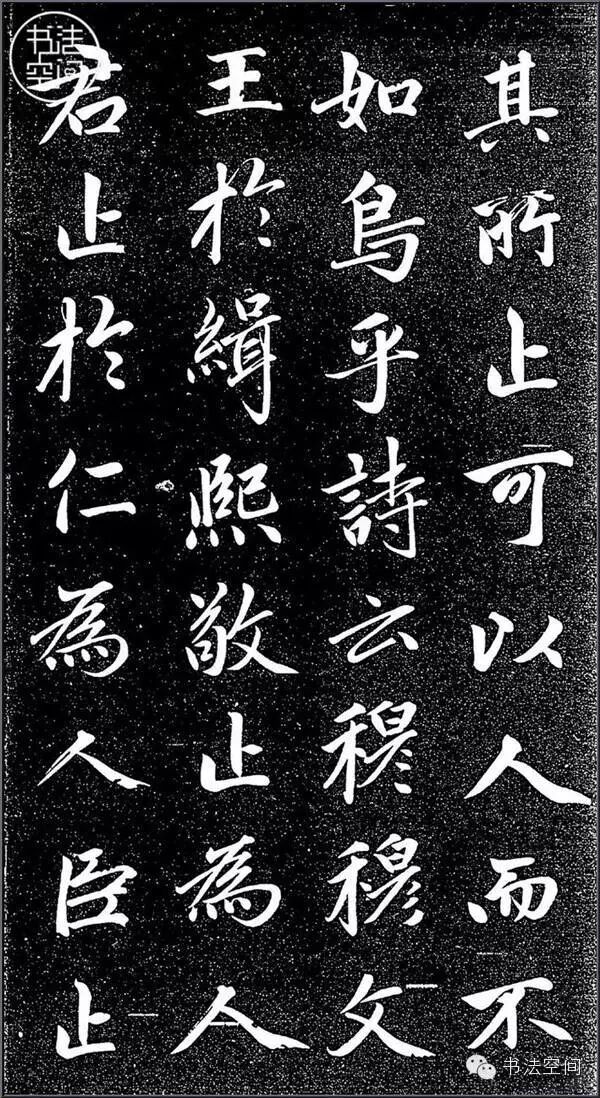 其所止可以人而不
如鳥乎詩云穆穆文
王於緝熙敬止為人
君止於仁為人臣止
书法空间
书法空间